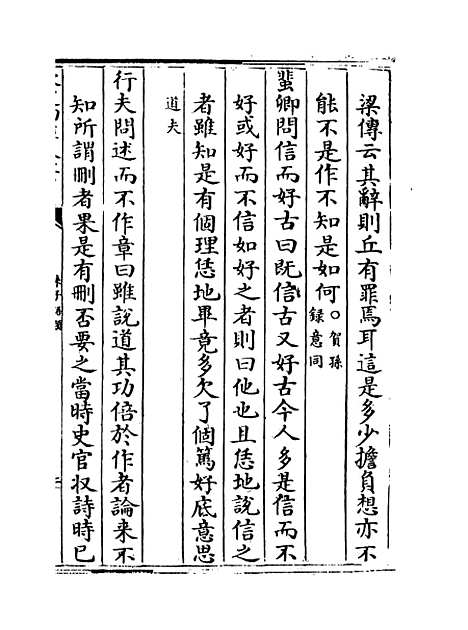 梁傳云其辭則丘有罪焉耳這是多少擔負想亦不
能不是作不知是如何○賀孫
録意同
蜚卿問信而好古曰既信古又好古今人多是信而不
好或好而不信如好之者則曰他也且恁地說信之
者雖知是有個理恁地畢竟多欠了個篤好底意思
道夫
行夫問述而不作章曰雖說道其功倍於作者論來不
知所謂刪者果是有刪否要之當時史官収詩時已